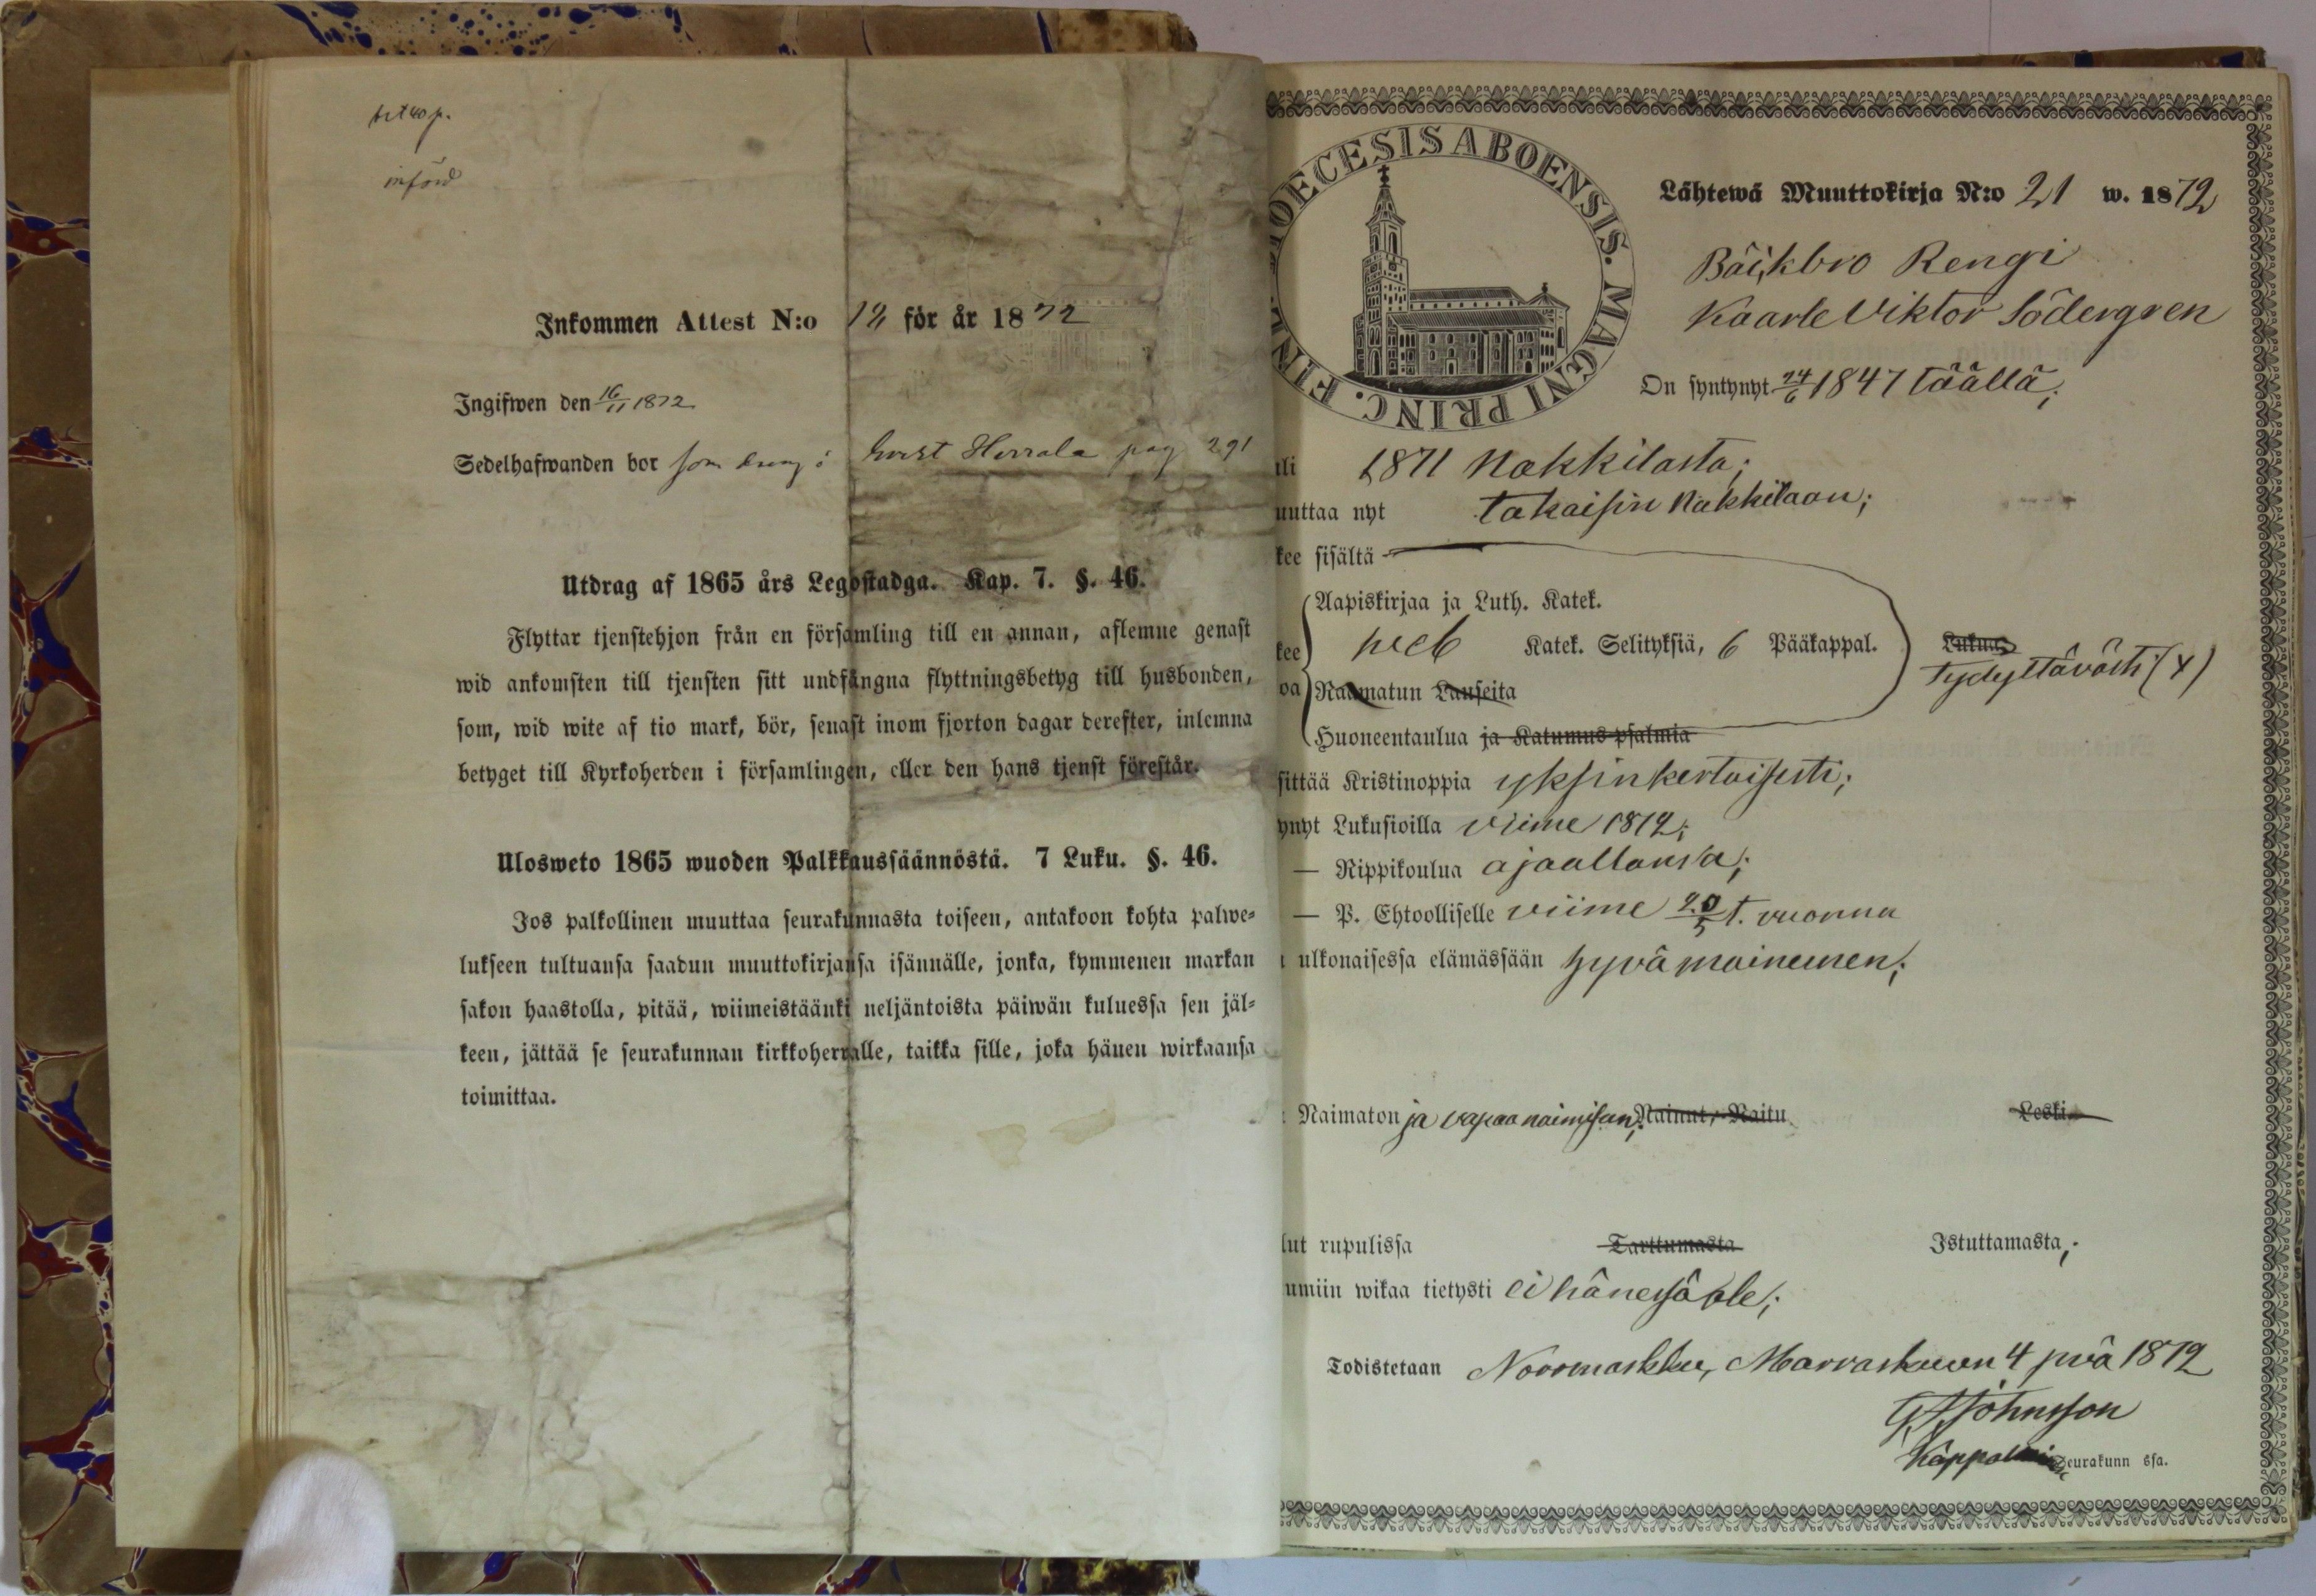 införd
Inkommen Attest N:o 12 för år 1872
Ingifwen den 16/11 1872
Sedelhafwanden bor som dreng i Herrala pag 291
Utdrag af 1865 års Legostadga. Kap. 7. §. 46.
Flyttar tjenstehjon från en församling till en annan, aflemne genast
wid ankomsten till tjensten sitt undfångna flyttningsbetyg till husbonden,
som, wid wite af tio mark, bör, senast inom fjorton dagar derefter, inlemna
betyget till Kyrkoherden i församlingen, eller den hans tjenst förestår.
Ulosweto 1865 wuoden Palkkaussäännöstä. 7 Luku. §. 46.
Jos palkollinen muuttaa seurakunnasta toiseen, antakoon kohta palwe-
lukseen tultuansa saadun muuttokirjansa isännälle, jonka, kymmenen markan
sakon haastolla, pitää, wiimeistäänki neljäntoista päiwän kuluessa sen jäl-
keen, jättää se seurakunnan kirkkoherralle, taikka sille, joka hänen wirkaansa
toimittaa.
OECESIS ABOENSIS. MAGNI PRINC. FINL
Lähtewä Muuttokirja N:o 21 w. 1872
Bäckbro Rengi
Kaarle Viktor Södergren
On syntynyt 24/6 1847 täällä;
uli 1871 Nakkilasta;
uuttaa nyt takaisin Nakkilaan;
kee sisältä
Aapiskirjaa ja Luth. Katek.
kee Katek. Selityksiä, 6 Pääkappal. Lukua
tydyttävästi (x)
oa Raamatun Lauseita
Huoneentaulua ja Katumus-psalmia
sittää Kristinoppia yksinkertaisesti;
ynyt Lukusioilla viime 1872;
— Rippikoulua ajaallansa;
— P. Ehtoolliselle viime 20/5 t. vuonna
ulkonaisessa elämässään hyvämaineinen;
Naimaton ja vapaa naimisan; Nainut, Naitu Leski
lut rupulissa Tarttumasta Istuttamasta;
umiin wikaa tietysti ei hänessä ole;
Todistetaan Noormarkku, Marraskuun 4 pvä 1872
G A Johnsson
Kappalainen Seurakunn ssa.